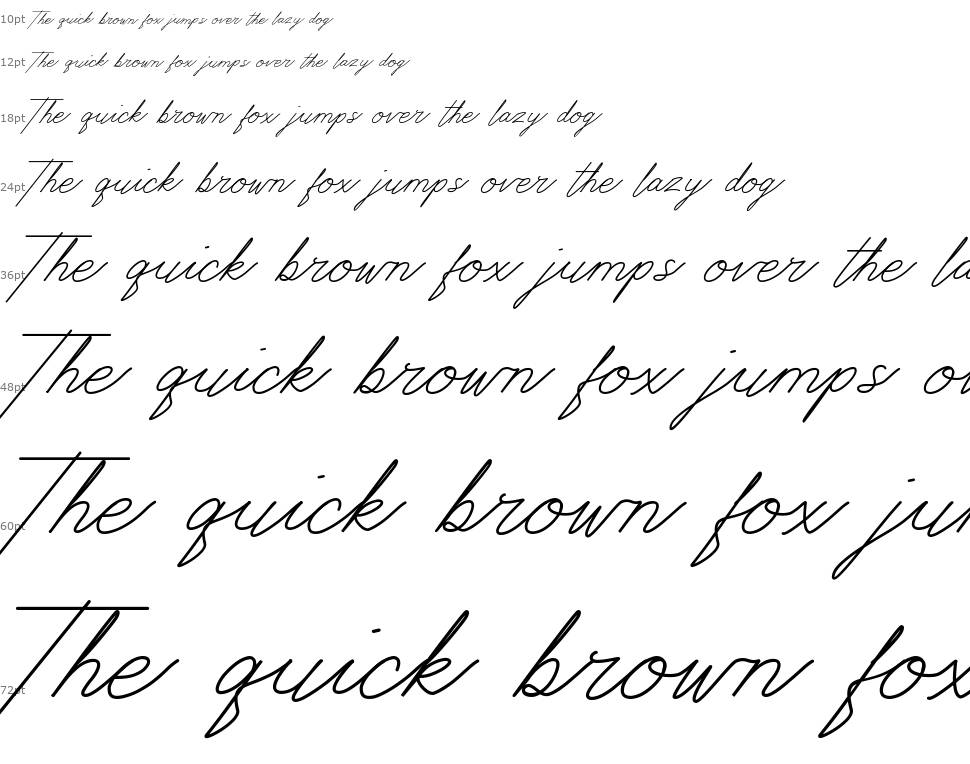 10pt The quick brown fox jumps over the lazy dog
12pt The quick brown fox jumps over the lazy dog
18pt The quick brown fox jumps over the lazy dog
24pt The quick brown fox jumps over the lazy dog
36pt The quick brown fox jumps over the la
48pt The quick brown fox jumps ov
60pt The quick brown fox jum
72pt The quick brown fox